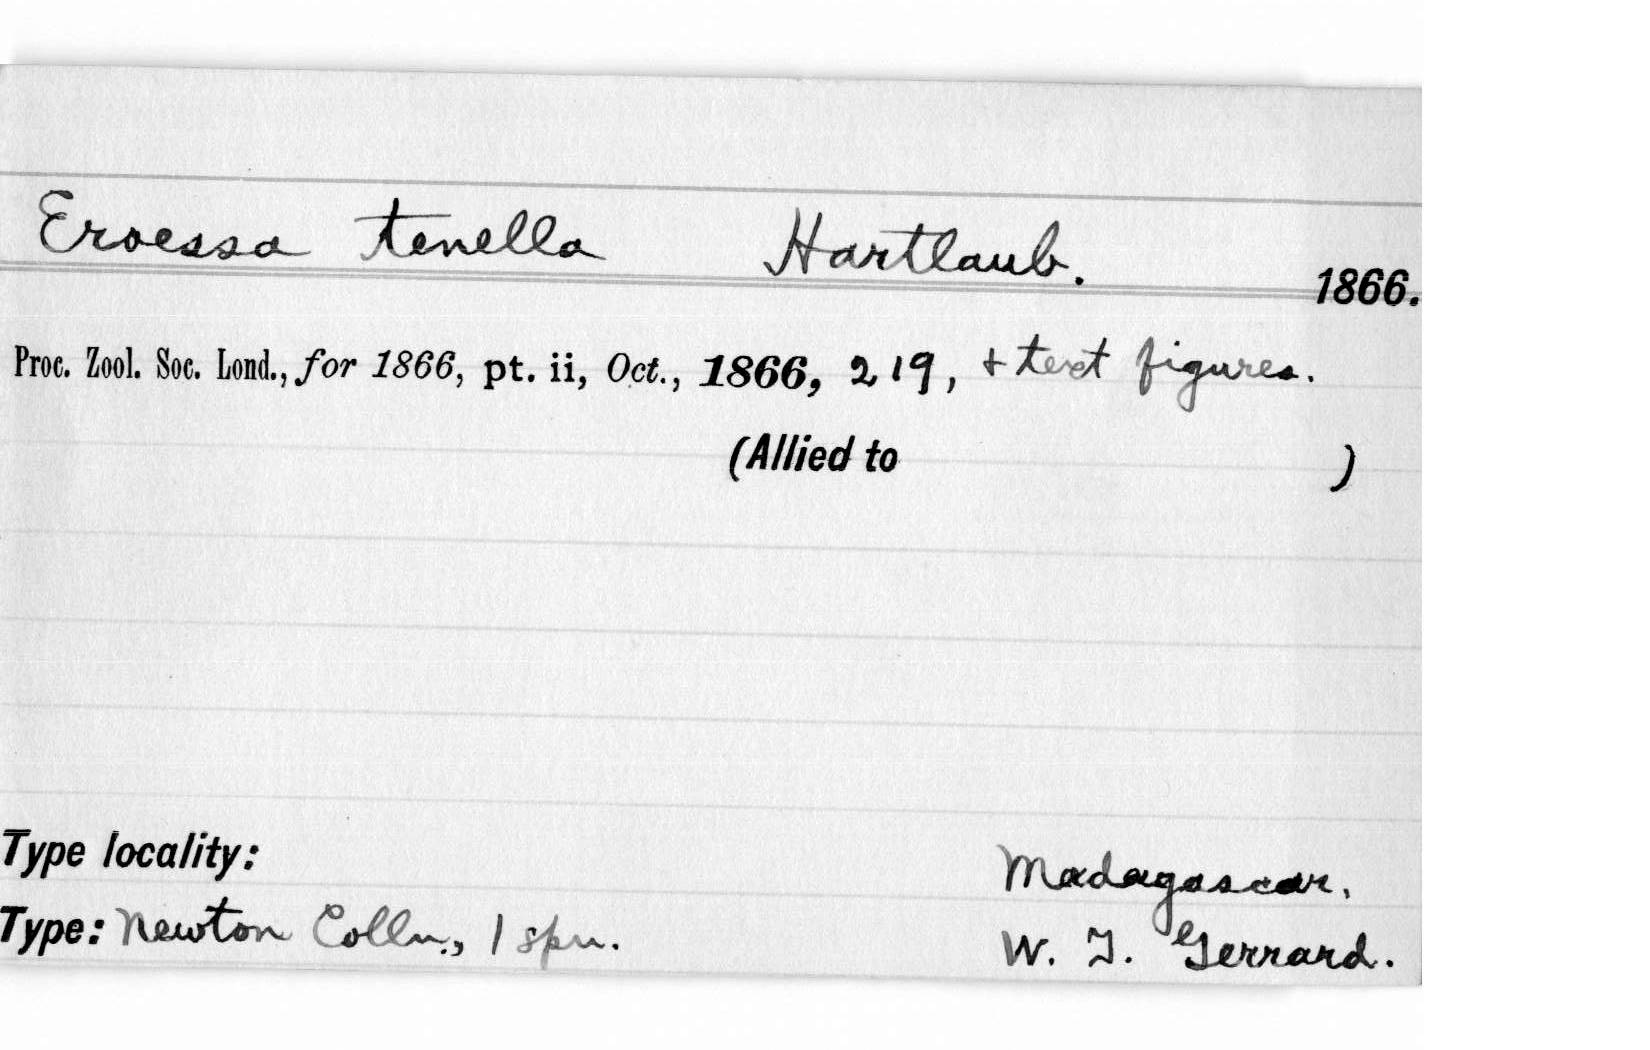 Eroessa tenella Hartlaub. 1866.
Proc. Zool. Soc. Lond., for 1866, pt. ii, Oct., 1866, 219, + text figures.
(Allied to )
Type locality: Madagascar.
Type: Newton Colln., 1 spn. W. J. Gerrard.